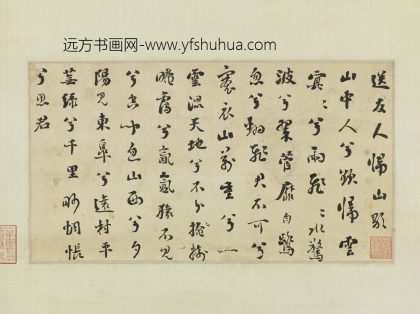 远方书画网-www.yfshuhua.com
送友人歸山歌
山中人兮欲歸雲
冥〻兮雨霏〻水驚
波兮翠菅靡白鷺
忽兮翻飛君不可兮
褰衣山萬重兮一
雲混天地兮不分樹
晻曖兮氛氳猿不見
兮空聞忽山西兮夕
陽見東皋兮遠村平
蕪綠兮千里眇惆悵
兮思君